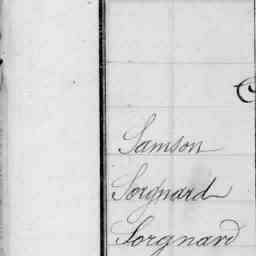 Samson
Sorgnard
Sorgnard